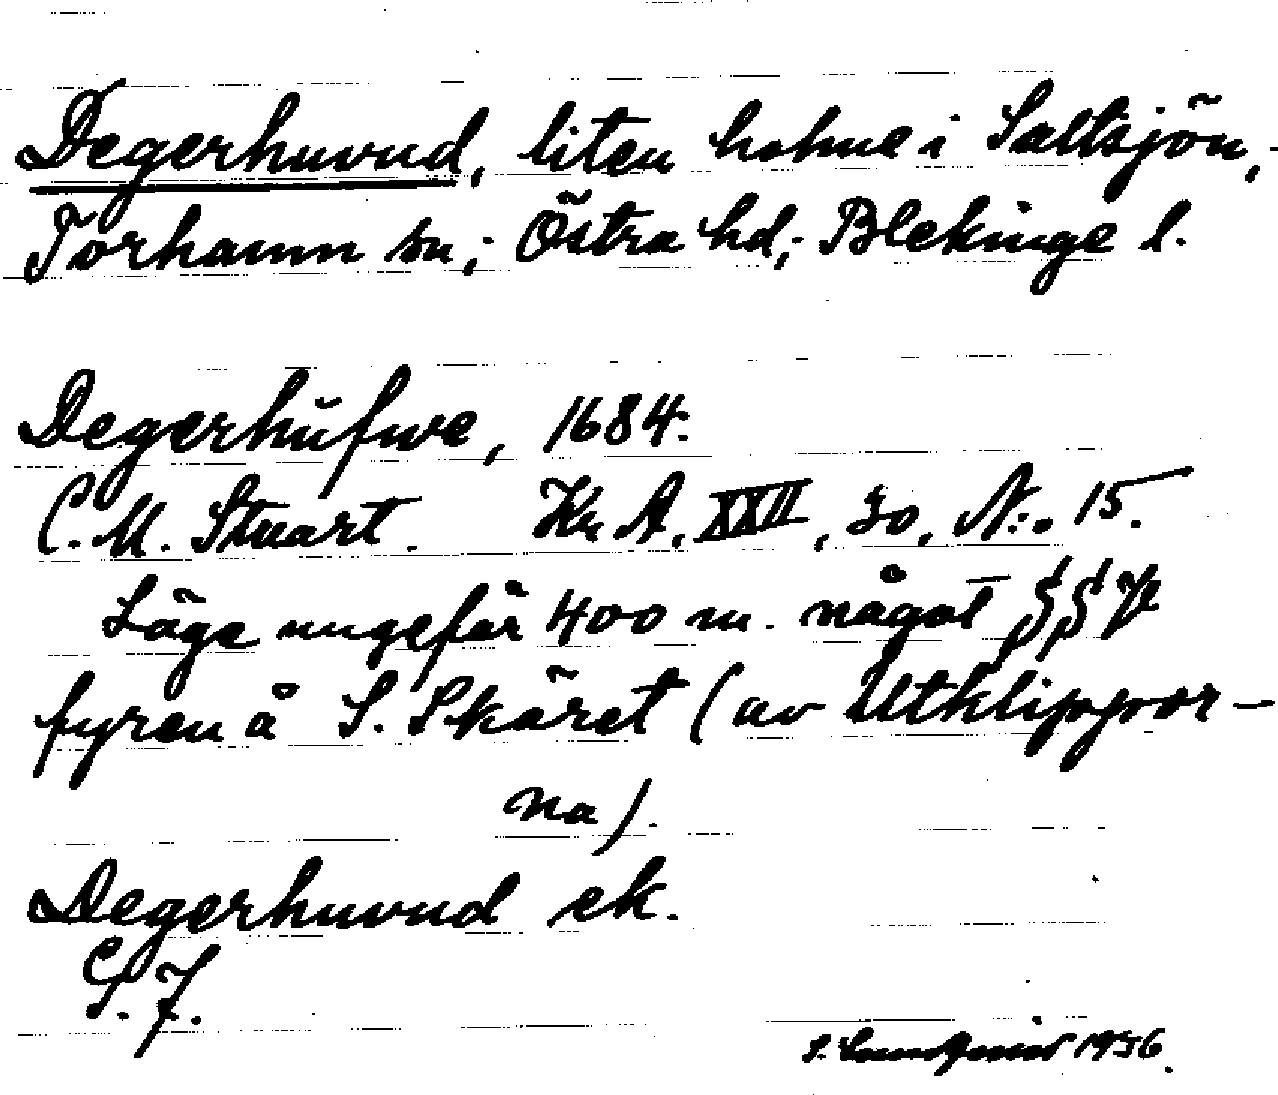 Degerhuvud, liten holme i Saltsjön,
Torhamn sn; Östra hd; Blekinge l.
Degerhufwe, 1684.
C. M. Stuart. Kr. A. XXII, 30, N:o 15.
Läge ungefär 400 m. något
fyren å S. Skäret (av Utklippor-
na).
Degerhuvud ek.
S. F.
1956.